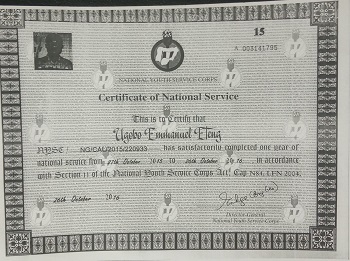 15
A 003141795
NATIONAL YOUTH SERVICE CORPS
Certificate of National Service
This is to Certify that
Ugobo Emmanuel Eteng
NYSC: NG/CAL/2015/220933 has satisfactorily completed one year of
national service from 27th October 2015 to 26th October 2016 in accordance
with Section 11 of the National Youth Service Corps Act! Cap N84, LFN 2004.
26th October 2016
Director-General
National Youth Service Corps